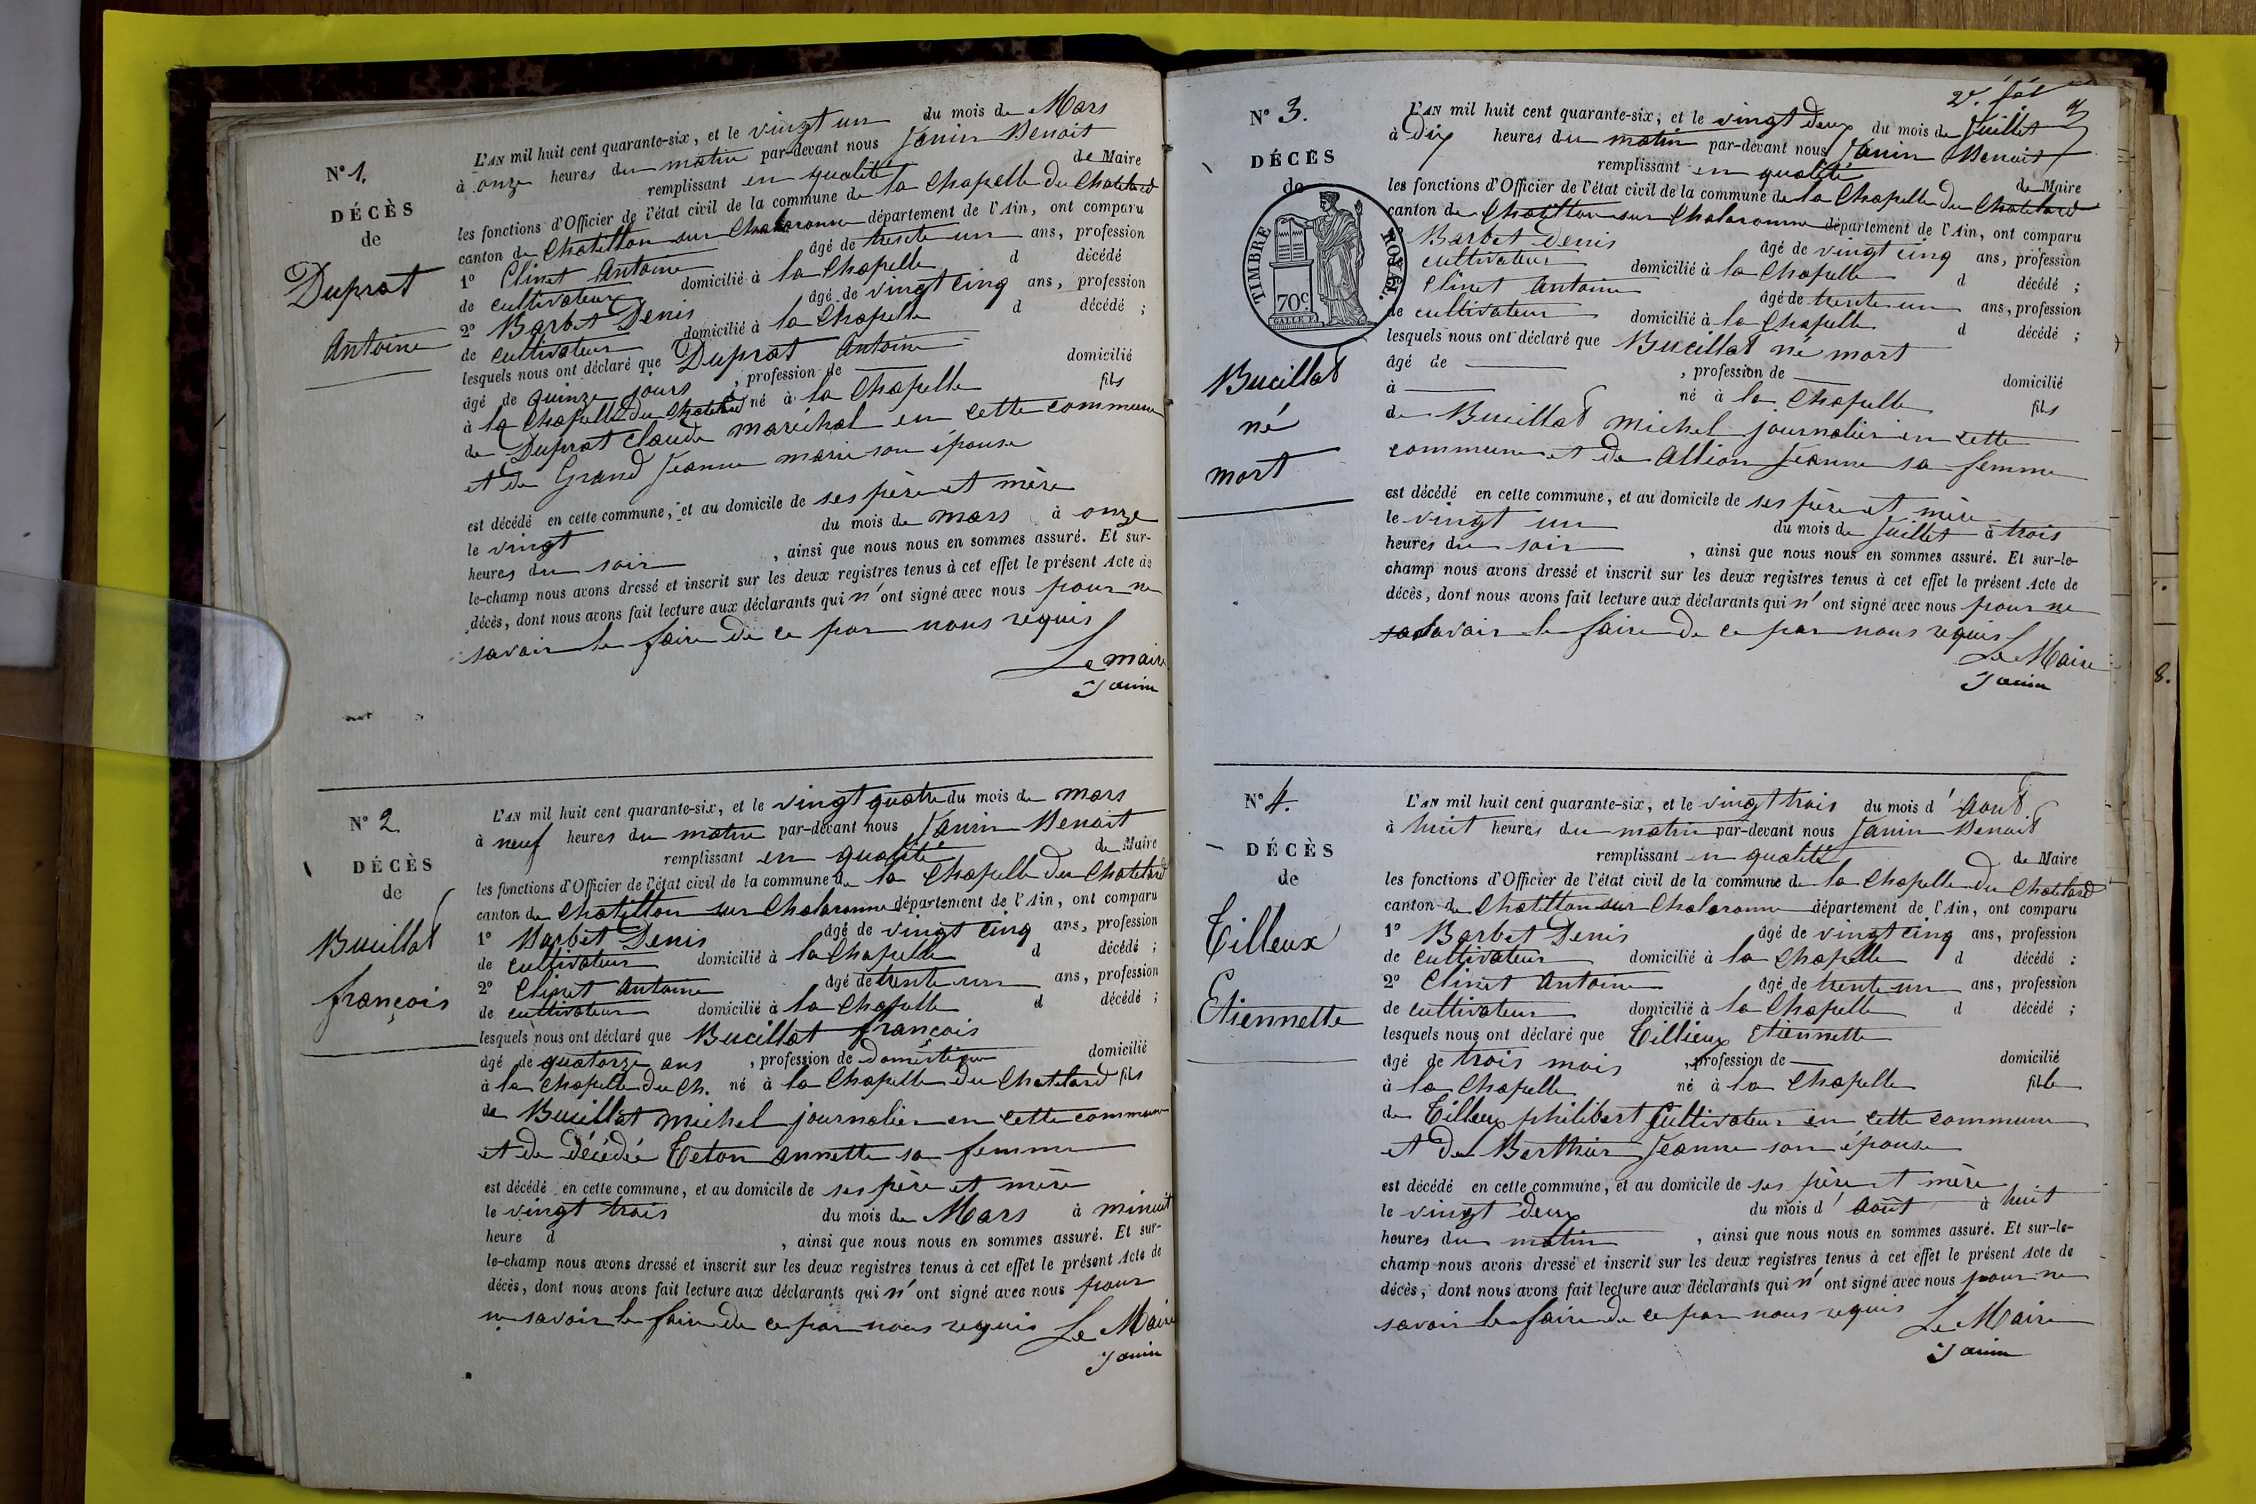 N° 1.
DÉCÈS
de
Duprat
Antoine
L'AN mil huit cent quarante-six, et le vingt un du mois de Mars
à onze heures du matin par-devant nous Janin Benoit
remplissant en qualité de Maire
les fonctions d'Officier de l'état civil de la commune de la Chapelle du Chatelard
canton de Chatillon sur Chalaronne département de l'Ain, ont comparu
1° Clinet Antoine âgé de trente un ans, profession
de cultivateur domicilié à la Chapelle d décédé
2° Barbet Denis âgé de vingt cinq ans, profession
de cultivateur domicilié à la Chapelle d décédé ;
lesquels nous ont déclaré que Duprat Antoine
âgé de quinze jours , profession de domicilié
à la Chapelle du Chatelard né à la Chapelle fils
de Duprat Claude maréchal en cette commune
et de Grand Jeanne marie son épouse
est décédé en cette commune, et au domicile de ses père et mère
le vingt du mois de mars à onze
heures du soir , ainsi que nous nous en sommes assuré. Et sur-
le-champ nous avons dressé et inscrit sur les deux registres tenus à cet effet le présent Acte de
décès, dont nous avons fait lecture aux déclarants qui n' ont signé avec nous pour ne
savoir le faire de ce par nous requis
Le maire
Janin
N° 2
DÉCÈS
de
Bucillat
françois
L'AN mil huit cent quarante-six, et le vingt quatre du mois de mars
à neuf heures du matin par-devant nous Janin Benoit
remplissant en qualité de Maire
les fonctions d'Officier de l'état civil de la commune de la Chapelle du Chatelard
canton de Chatillon sur Chalaronne département de l'Ain, ont comparu
1° Barbet Denis âgé de vingt cinq ans, profession
de cultivateur domicilié à la Chapelle d décédé ;
2° Clinet Antoine âgé de trente un ans, profession
de cultivateur domicilié à la Chapelle d décédé ;
lesquels nous ont déclaré que Bucillat françois
âgé de quatorze ans , profession de domestique domicilié
à la Chapelle du Ch. né à la Chapelle du Chatelard fils
de Bucillat Michel journalier en cette commune
et de décédée Teton annette sa femme
est décédé en cette commune, et au domicile de ses père et mère
le vingt trois du mois de Mars à minuit
heure d , ainsi que nous nous en sommes assuré. Et sur-
le-champ nous avons dressé et inscrit sur les deux registres tenus à cet effet le présent Acte de
décès, dont nous avons fait lecture aux déclarants qui n' ont signé avec nous pour
ne savoir le faire de ce par nous requis Le Maire
Janin
N° 3.
DÉCÈS
de
TIMBRE ROYAL
70c
Bucillat
né
mort
L'AN mil huit cent quarante-six, et le vingt deux du mois de Juillet
à Dix heures du matin par-devant nous Janin Benoit
remplissant en qualité de Maire
les fonctions d'Officier de l'état civil de la commune de la Chapelle du Chatelard
canton de Chatillon sur Chalaronne département de l'Ain, ont comparu
Barbet Denis âgé de vingt cinq ans, profession
cultivateur domicilié à la Chapelle d décédé ;
Clinet Antoine âgé de trente un ans, profession
de cultivateur domicilié à la Chapelle d décédé ;
lesquels nous ont déclaré que Bucillat né mort
âgé de , profession de domicilié
à né à la Chapelle fils
de Bucillat Michel journalier en cette
commune et de Allion Jeanne sa femme
est décédé en cette commune, et au domicile de ses père et mère
le vingt un du mois de Juillet à trois
heures du soir , ainsi que nous nous en sommes assuré. Et sur-le-
champ nous avons dressé et inscrit sur les deux registres tenus à cet effet le présent Acte de
décès, dont nous avons fait lecture aux déclarants qui n' ont signé avec nous pour ne
savoir le faire de ce par nous requis
Le Maire
Janin
8.
N° 4.
DÉCÈS
de
Tilleux
Etiennette
L'AN mil huit cent quarante-six, et le vingt trois du mois d' Aout
à huit heures du matin par-devant nous Janin Benoit
remplissant en qualité de Maire
les fonctions d'Officier de l'état civil de la commune de la Chapelle du Chatelard
canton de Chatillon sur Chalaronne département de l'Ain, ont comparu
1° Barbet Denis âgé de vingt cinq ans, profession
de cultivateur domicilié à la Chapelle d décédé ;
2° Clinet Antoine âgé de trente un ans, profession
de cultivateur domicilié à la Chapelle d décédé ;
lesquels nous ont déclaré que Tillieux Etiennette
âgé de trois mois , profession de domicilié
à la Chapelle né à la Chapelle fille
de Tilleux philibert Cultivateur en cette commune
et De Berthier Jeanne son épouse
est décédé en cette commune, et au domicile de ses père et mère
le vingt deux du mois d' Août à huit
heures du matin , ainsi que nous nous en sommes assuré. Et sur-le-
champ nous avons dressé et inscrit sur les deux registres tenus à cet effet le présent Acte de
décès, dont nous avons fait lecture aux déclarants qui n' ont signé avec nous pour ne
savoir le faire de ce par nous requis Le Maire
Janin